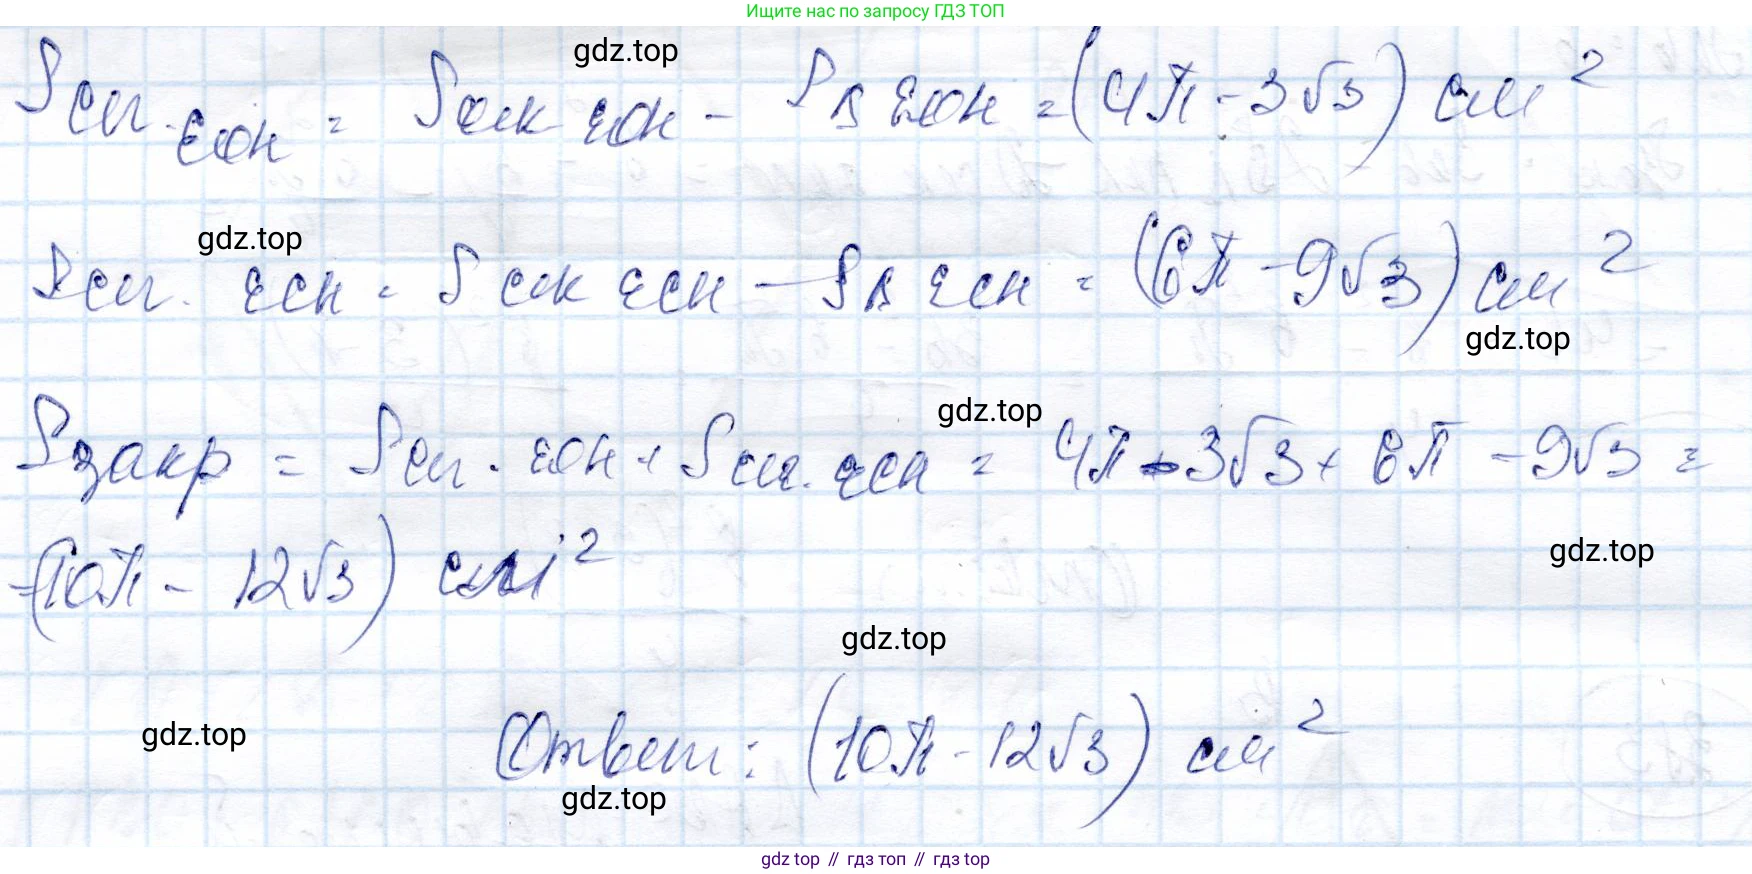 Ищите нас по запросу ГДЗ ТОП
gdz.top
Sсег. EOH = Sсек EOH - S∆ EOH = (4π - 3√3) см²
gdz.top
Sсег. ECH = Sсек ECH - S∆ ECH = (6π - 9√3) см²
gdz.top
gdz.top
Sзакр = Sсег. EOH + Sсег. ECH = 4π - 3√3 + 6π - 9√3 =
gdz.top
=(10π - 12√3) см²
gdz.top
gdz.top
Ответ: (10π - 12√3) см²
gdz.top
gdz top // гдз топ // гдз top